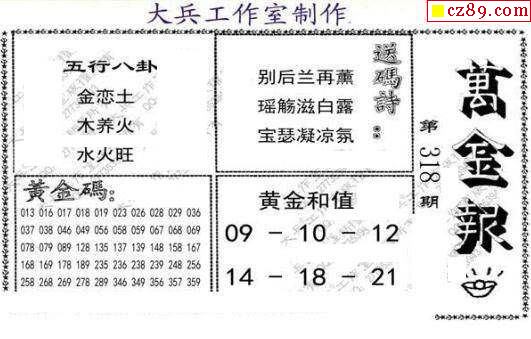 大兵工作室制作
cz89.com
五行八卦
金恋土
木养火
水火旺
送碼詩：
别后兰再薰
瑶觞滋白露
宝瑟凝凉氛
萬金報
第318期
黃金碼：
013 016 017 018 019 023 026 028 029 036
037 038 046 049 059 067 068 069 076 077
078 079 089 128 135 137 139 148 158 167
168 169 178 189 235 236 239 248 256
258 268 269 278 289 346 349 356 357 359
黄金和值
09 - 10 - 12
14 - 18 - 21